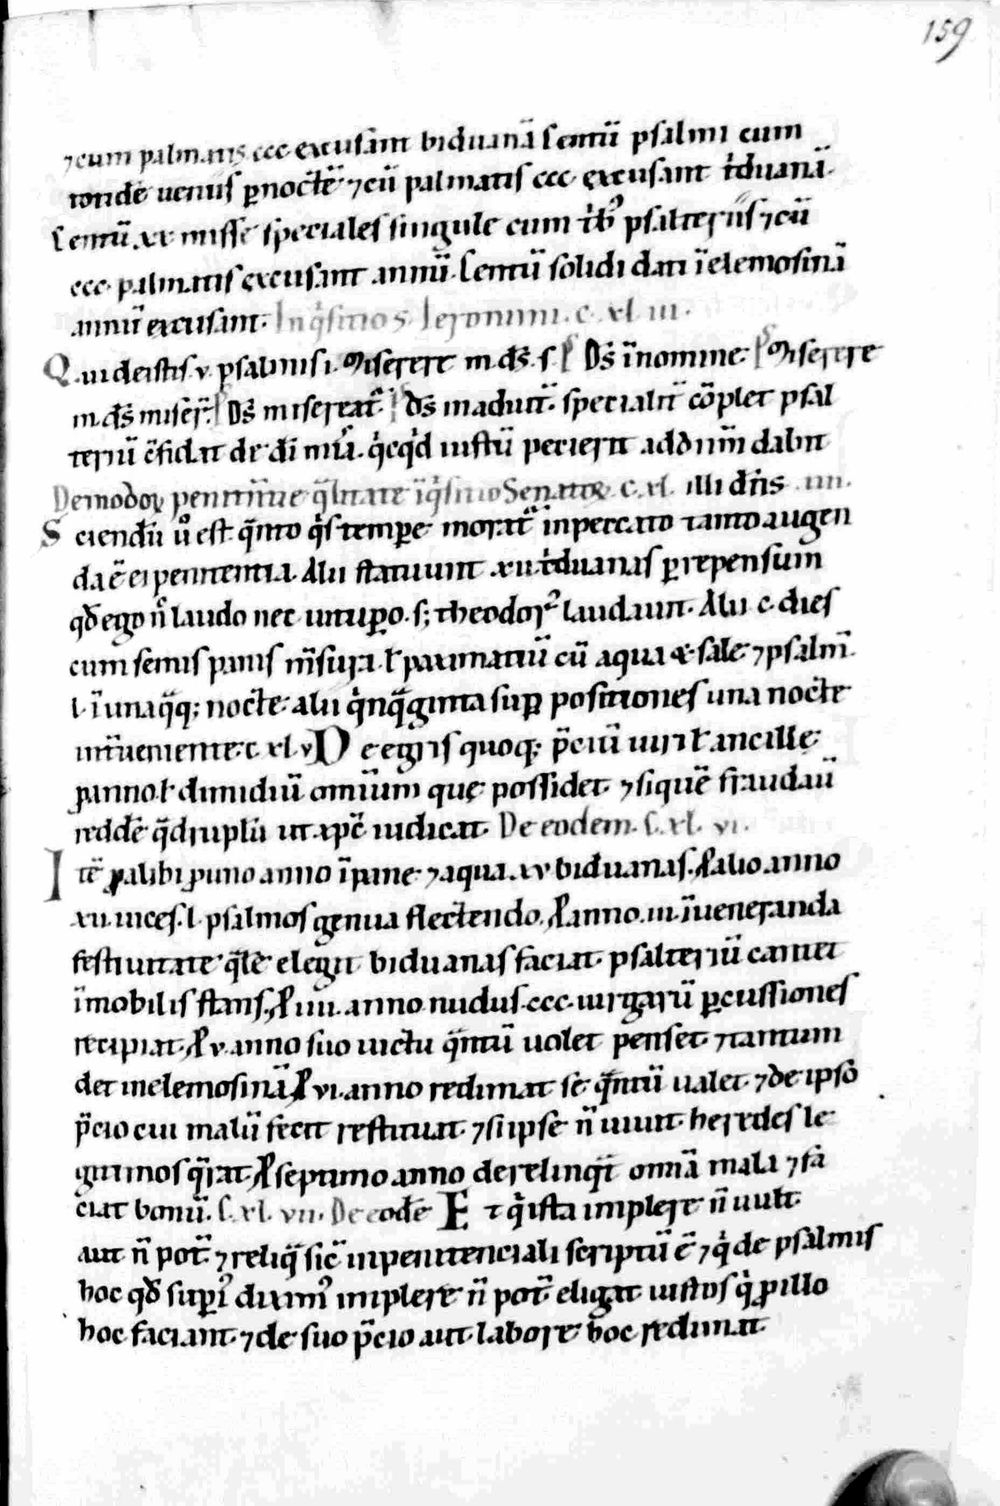 159
⁊cum palmatis ccc excusant biduanā Centū psalmi cum
tondē uenuis ꝑnoctē ⁊cū palmatis ccc excusant tͥduanā.
Centū .xx misse speciales singule cum tͥbꝰ psalteriis ⁊cū
ccc. palmatis excusant annū. Centū solidi dati ī elemosinā
annū excusant. Inqͥsitio S. Ieronimi. c. xl iii.
Qui deistis .v. psalmis .i. Miserere m. ds̄. s. p̄ Ds̄ ī nomine. p̄ Miserere
m. ds̄ miser. p̄ Ds̄ misereat̄. p̄ ds̄ madiut. specialit̄ cōplet psal
teriū cfidat de di mia. qͥcqͥd iustū petierit ad dnm̄ dabit
De modoꝝ penitentie qͣlitate īqͥsitio Senatoꝝ. c. xl. illi dn̄s .iiii.
Sciendū ū est qͣnto qͥs tempꝑe morat̄ in peccato tanto augen
da ē ei penitentia. Alii statuunt .xii. tͥduanas ꝑ repensum
qd̄ ego n̄ laudo nec uitupꝑo. s; theodorꝰ laudauit. Alii c. dies
cum semis panis m̄sura. ł paximatiū cū aqua & sale ⁊ psalm̄.
l. ī unaqͣq; nocte alii qͥnqͣginta suꝑ positiones una nocte
int̄ueniente. c. xl. v De egris quoq; p̄ciū uiri ł ancille
ꝑ anno. ł dimidiū omium que possidet ⁊ siquē fraudaū
reddē qͣdruplū ut xp̄c iudicat. De eodem. C. xl. vi.
Itē ꝓ alibi ꝑ uno anno ī pane ⁊ aqua .xv biduanas. ꝓ alio anno
.xii. uices. l. psalmos genua flectendo. ꝓ anno .iii. ī ueneranda
festiuitate qͣlē elegit biduanas faciat psalteriū cantet
īmobilis stans. ꝓ iiii. anno nudus .ccc. uirgarū ꝑcussiones
recipiat. ꝓ v. anno suo uictu qͣntū uolet penset ⁊ tantum
det in elemosinā ꝓ vi. anno redimat se qͣntū ualet ⁊ de ipso
p̄cio cui malū fecit restituat ⁊ si ipse n̄ uiuit heredes le
gitimos qͣrat ꝓ septimo anno derelinqͣt omnā mala ⁊ fa
ciat bonū. C. xl. vii. De eodē Et qͥ ista implere n̄ uult
aut n̄ pot̄ ⁊ reliqͣ sic̄ in penitenciali scriptū ē ⁊ qͥ de psalmis
hoc qd̄ supͥ diximꝰ implere n̄ pot̄ eligat iustos qͥ ꝓ illo
hoc faciant ⁊ de suo p̄cio aut labore hoc redimat